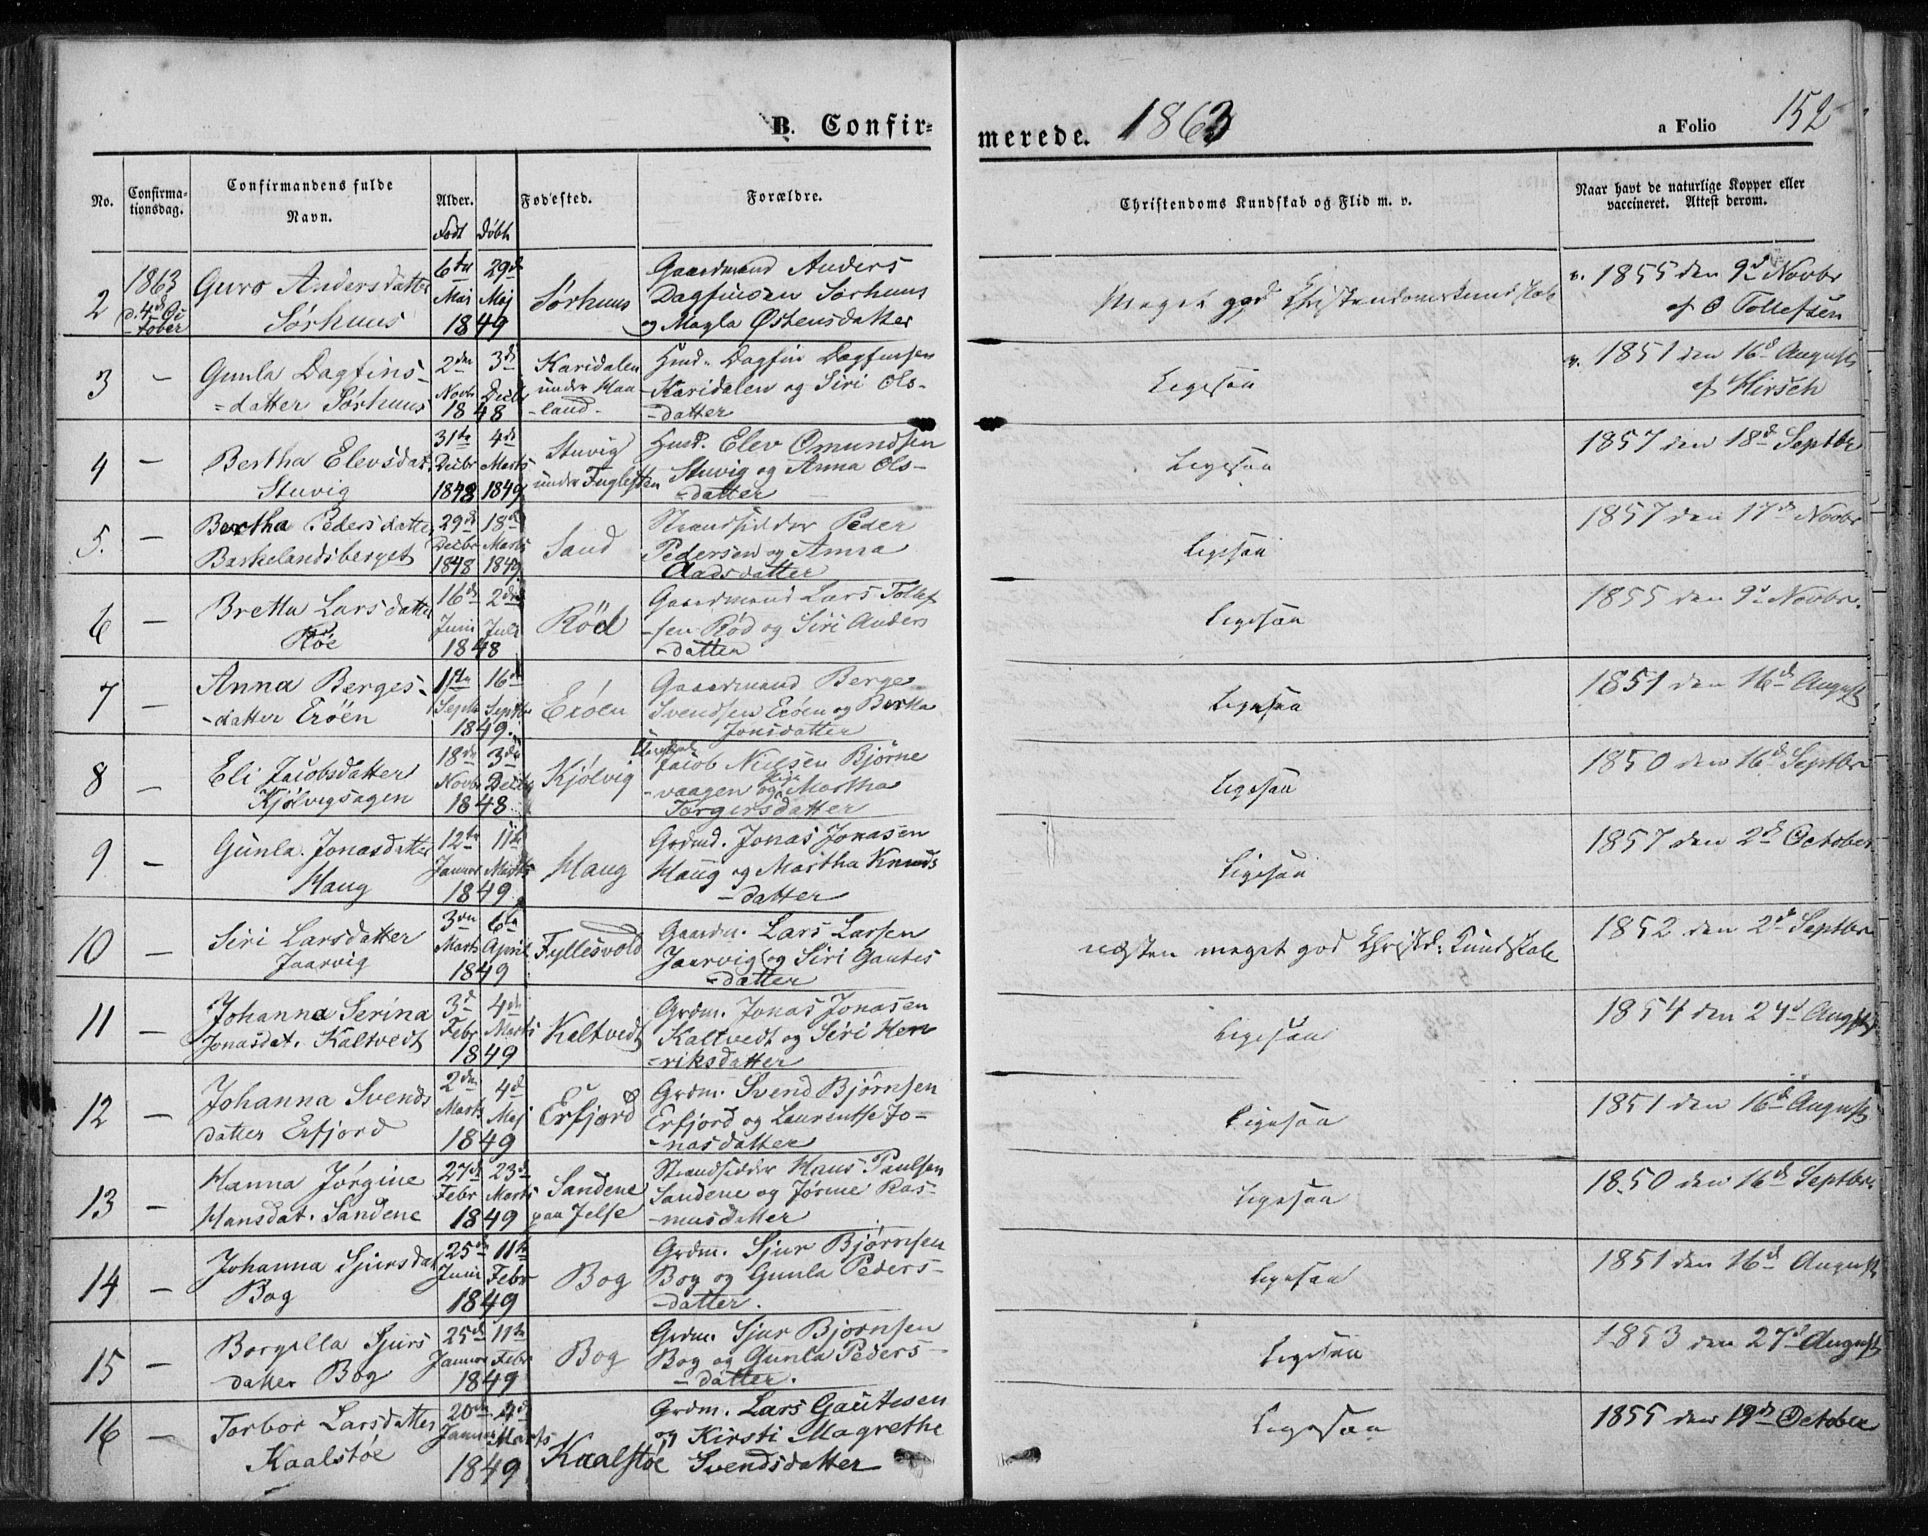 B. Confir=
merede. 1863
a Folio 152
No. Confirma-tionsdag. Confirmandens fulde Navn. Alder. Født Døbt Fødested. Forældre. Christendoms Kundskab og Flid m. v. Naar havt de naturlige Kopper eller vaccineret. Attest derom.
2 1863 d. 4d Oc-tober Guro Andersdatter Sørhuus 6te Maj 1849 29d Maj Sørhuus Gaardmand Anders Dagfinsen Sørhuus og Magla Østensdatter Meget god Christendomskundskab v. 1855 den 9d Novbr af O Tollefsen
3 – Gunla Dagfins-=datter Sørhuus 2den Novb 1848 3d Decbr Karidalen under Haa-land- Husd. Dagfin Dagfinsen Karidalen og Siri Ols--datter Ligesaa v. 1851 den 16d August af Hirsch
4 – Bertha Elevsdat. Stuvig 31te Decbr 1848 4de Marts 1849 Stuvig under Fuglesten Husd. Elev Omundsen Stuvig og Anna Ols--datter Ligesaa 1857 den 18d Septbr
5. – Bertha Pedersdatter Barkelandsberget 29d Decbr 1848 18de Marts 1849 Sand Strandsidder Peder Pedersen og Anna Aadsdatter Ligesaa 1857 den 17d Novbr
6 – Bretta Larsdatter Røe 16de Juni 1848 2den Juli Rød Gaardmand Lars Tollef-sen Rød og Siri Anders-datter Ligesaa 1855 den 9d Novbr.
7 – Anna Berges--datter Erøen 1ste Septb 1849. 16d Septbr Erøen Gaardmand Berge Svendsen Erøen og Berta Jonsdatter Ligesaa 1851 den 16d August
8 – Eli Jacobsdatter Kjølvigsagen 18de Novbr 1848 3die Decbr Kjølvig Jacob Nielsen Bjørne-vaagen og Martha Torgersdatter Ligesaa 1850 den 16d Septbr
9 – Gunla Jonasdatter Haug 12te Januar 1849 11te Marts Haug Grdmd. Jonas Jonasen Haug og Martha Knuds-datter Ligesaa 1857 den 2d October
10 – Siri Larsdatter Jaarvig 3die Marts 1849 6te April Fyllesvold Gaardm. Lars Larsen Jaarvig og Siri Gautes-datter næsten meget god Christd: Kundskab 1852 den 2d Septbr
11 – Johanna Serina Jonasdat. Kaltvedt 3d Febr 1849 4de Marts Kaltvedt Grdm. Jonas Jonasen Kaltvedt og Siri Hen=riksdatter Ligesaa 1854 den 24d August
12 – Johanna Svends datter Erfjord 2den Marts 1849 4d Maj Erfjord Grdm. Svend Bjørnsen Erfjord og Laurentse Jo--nasdatter Ligesaa 1851 den 16d August
13 – Hanna Jørgine Hansdat. Sandene 27d Febr 1849 23d Marts Sandene paa Jelse Strandsidder Hans Paulsen Sandene og Jørine Ras--musdatter Ligesaa 1850 den 16d Septbr
14 – Johanna Sjursdat Bog 25d Juni 1849 11te Febr Bog Grdm. Sjur Bjørnsen Bog og Gunla Peders--datter. Ligesaa 1851 den 16d August
15 – Borgilla Sjurs datter Bog 25d Januar 1849 11te Febr Bog Grdm. Sjur Bjørnsen Bog og Gunla Peders--datter. Ligesaa 1853 den 27d August
16 – Torbor Larsdatter Kaalstøe 20de Januar 1849 4d Marts Kaalstøe Grdm. Lars Gautesen og Kirsti Magrethe Svendsdatter Ligesaa 1855 den 19d October